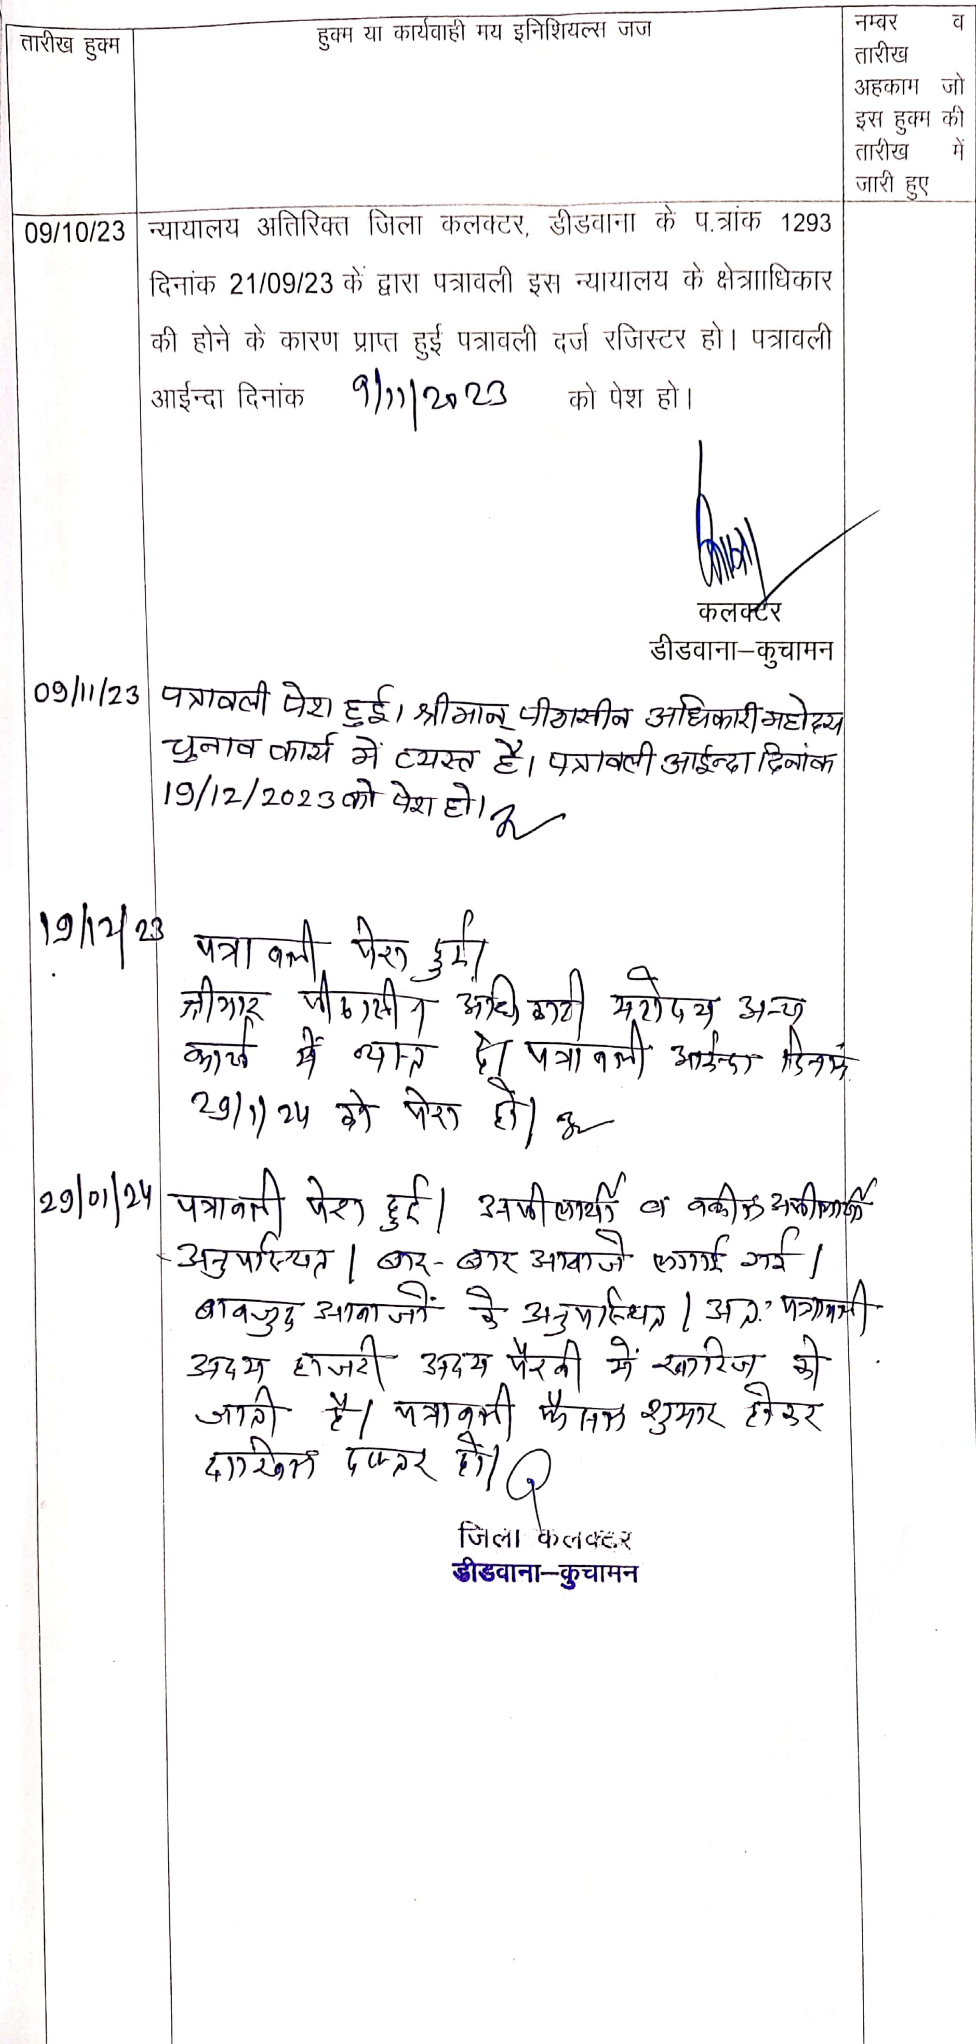 तारीख हुक्म
हुक्म या कार्यवाही मय इनिशियल्स जज
नम्बर व
तारीख
अहकाम जो
इस हुक्म की
तारीख में
जारी हुए
09/10/23
न्यायालय अतिरिक्त जिला कलक्टर, डीडवाना के प.त्रांक 1293
दिनांक 21/09/23 कें द्वारा पत्रावली इस न्यायालय के क्षेत्रााधिकार
की होने के कारण प्राप्त हुई पत्रावली दर्ज रजिस्टर हो। पत्रावली
आईन्दा दिनांक 9/11/2023 को पेश हो।
कलक्टर
डीडवाना–कुचामन
09/11/23 पत्रावली पेश हुई। श्रीमान् पीठासीन अधिकारी महोदय
चुनाव कार्य में व्यस्त है। पत्रावली आईन्दा दिनांक
19/12/2023 को पेश हो।
19/12/23 पत्रावली पेश हुई।
श्रीमान पीठासीन अधिकारी महोदय अन्य
कार्य में व्यस्त है। पत्रावली आईन्दा दिनांक
29/1/24 को पेश हो।
29/01/24 पत्रावली पेश हुई। अपीलार्थी व वकील अपीलार्थी
अनुपस्थित। बार-बार आवाजे लगाई गई।
बावजुद आवाजों के अनुपस्थित। अतः पत्रावली
अदम हाजरी अदम पैरवी में खारिज की
जाती है। पत्रावली फैसल शुमार होकर
दाखिल दफ्तर हो।
जिला कलक्टर
डीडवाना–कुचामन